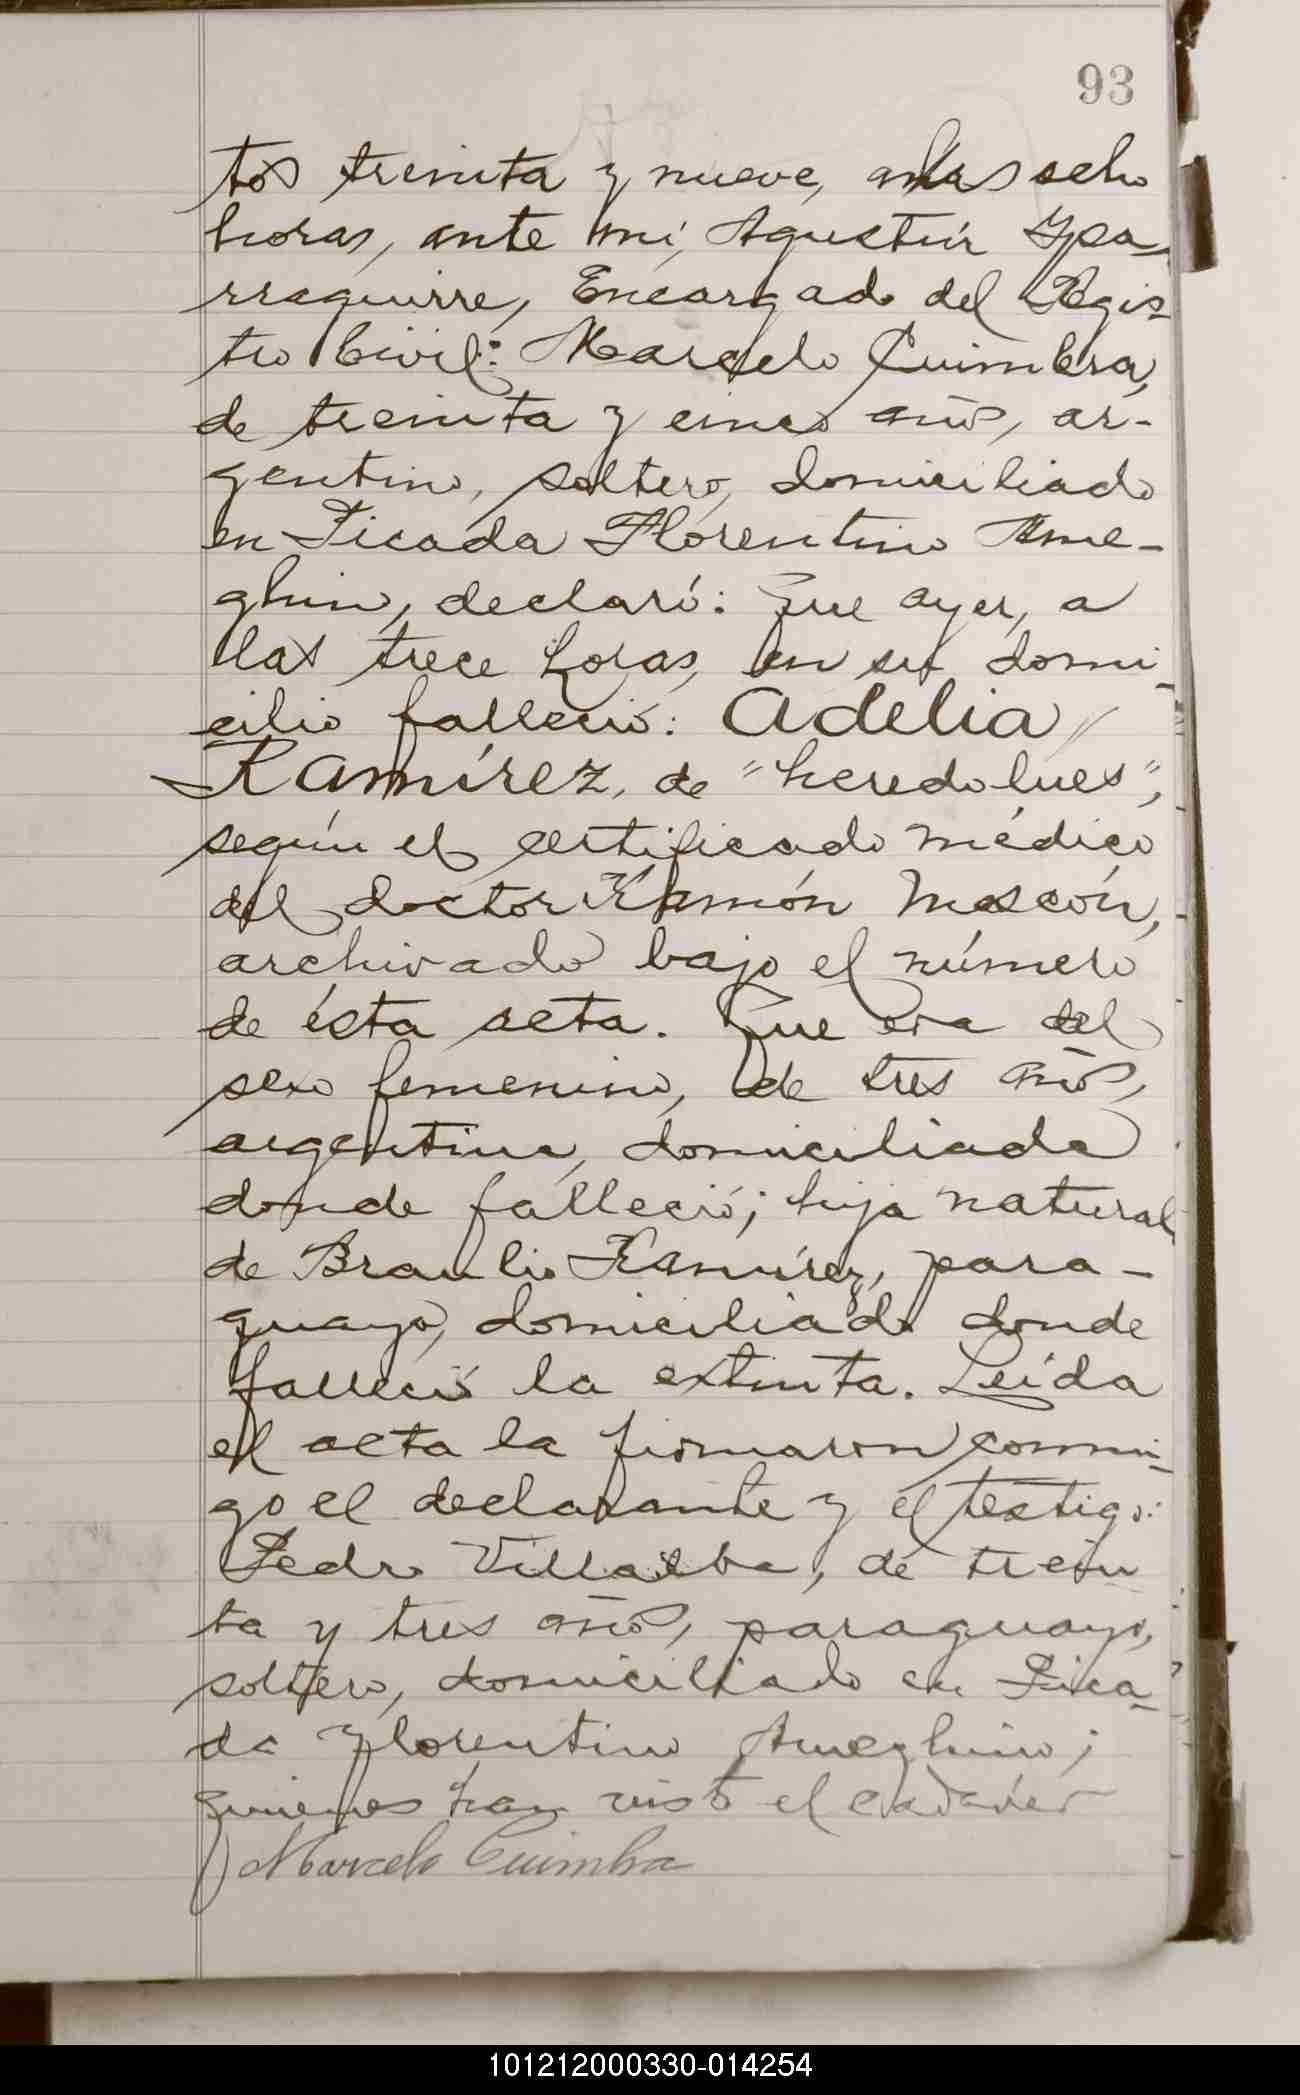 93
tos treinta y nueve, a las ocho
horas, ante mí, Agustín Ypa-
rraguirre, Encargado del Regis-
tro Civil: Marcelo Cuimbra,
de treinta y cinco años, ar-
gentino, soltero, domiciliado
en Picada Florentino Ame-
ghino, declaró: Que ayer, a
las trece horas, en su domi-
cilio falleció: Adelia
Ramírez, de "heredo lues",
según el certificado médico
del doctor Ramón Mascón,
archivado bajo el número
de ésta acta. Que era del
sexo femenino, de tres años,
argentina, domiciliada
donde falleció; hija natural
de Braulio Ramírez, para-
guayo, domiciliado donde
falleció la extinta. Leída
el acta la firmaron conmi-
go el declarante y el testigo:
Pedro Villalba, de trein
ta y tres años, paraguayo,
soltero, domiciliado en Pica-
da Florentino Ameghino;
quienes han visto el cadáver
Marcelo Cuimbra
101212000330-014254